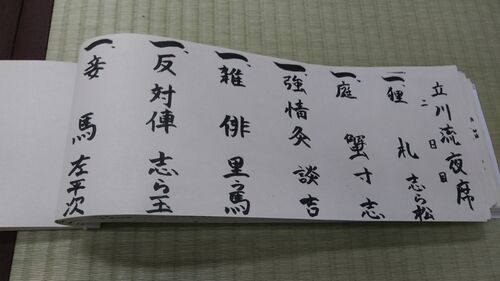 立川流夜席
二日目
一、狸札 志ら松
一、庭蟹 寸志
一、強情灸 談吉
一、雑俳 里う馬
一、反対俥 志ら玉
一、妾馬 左平次